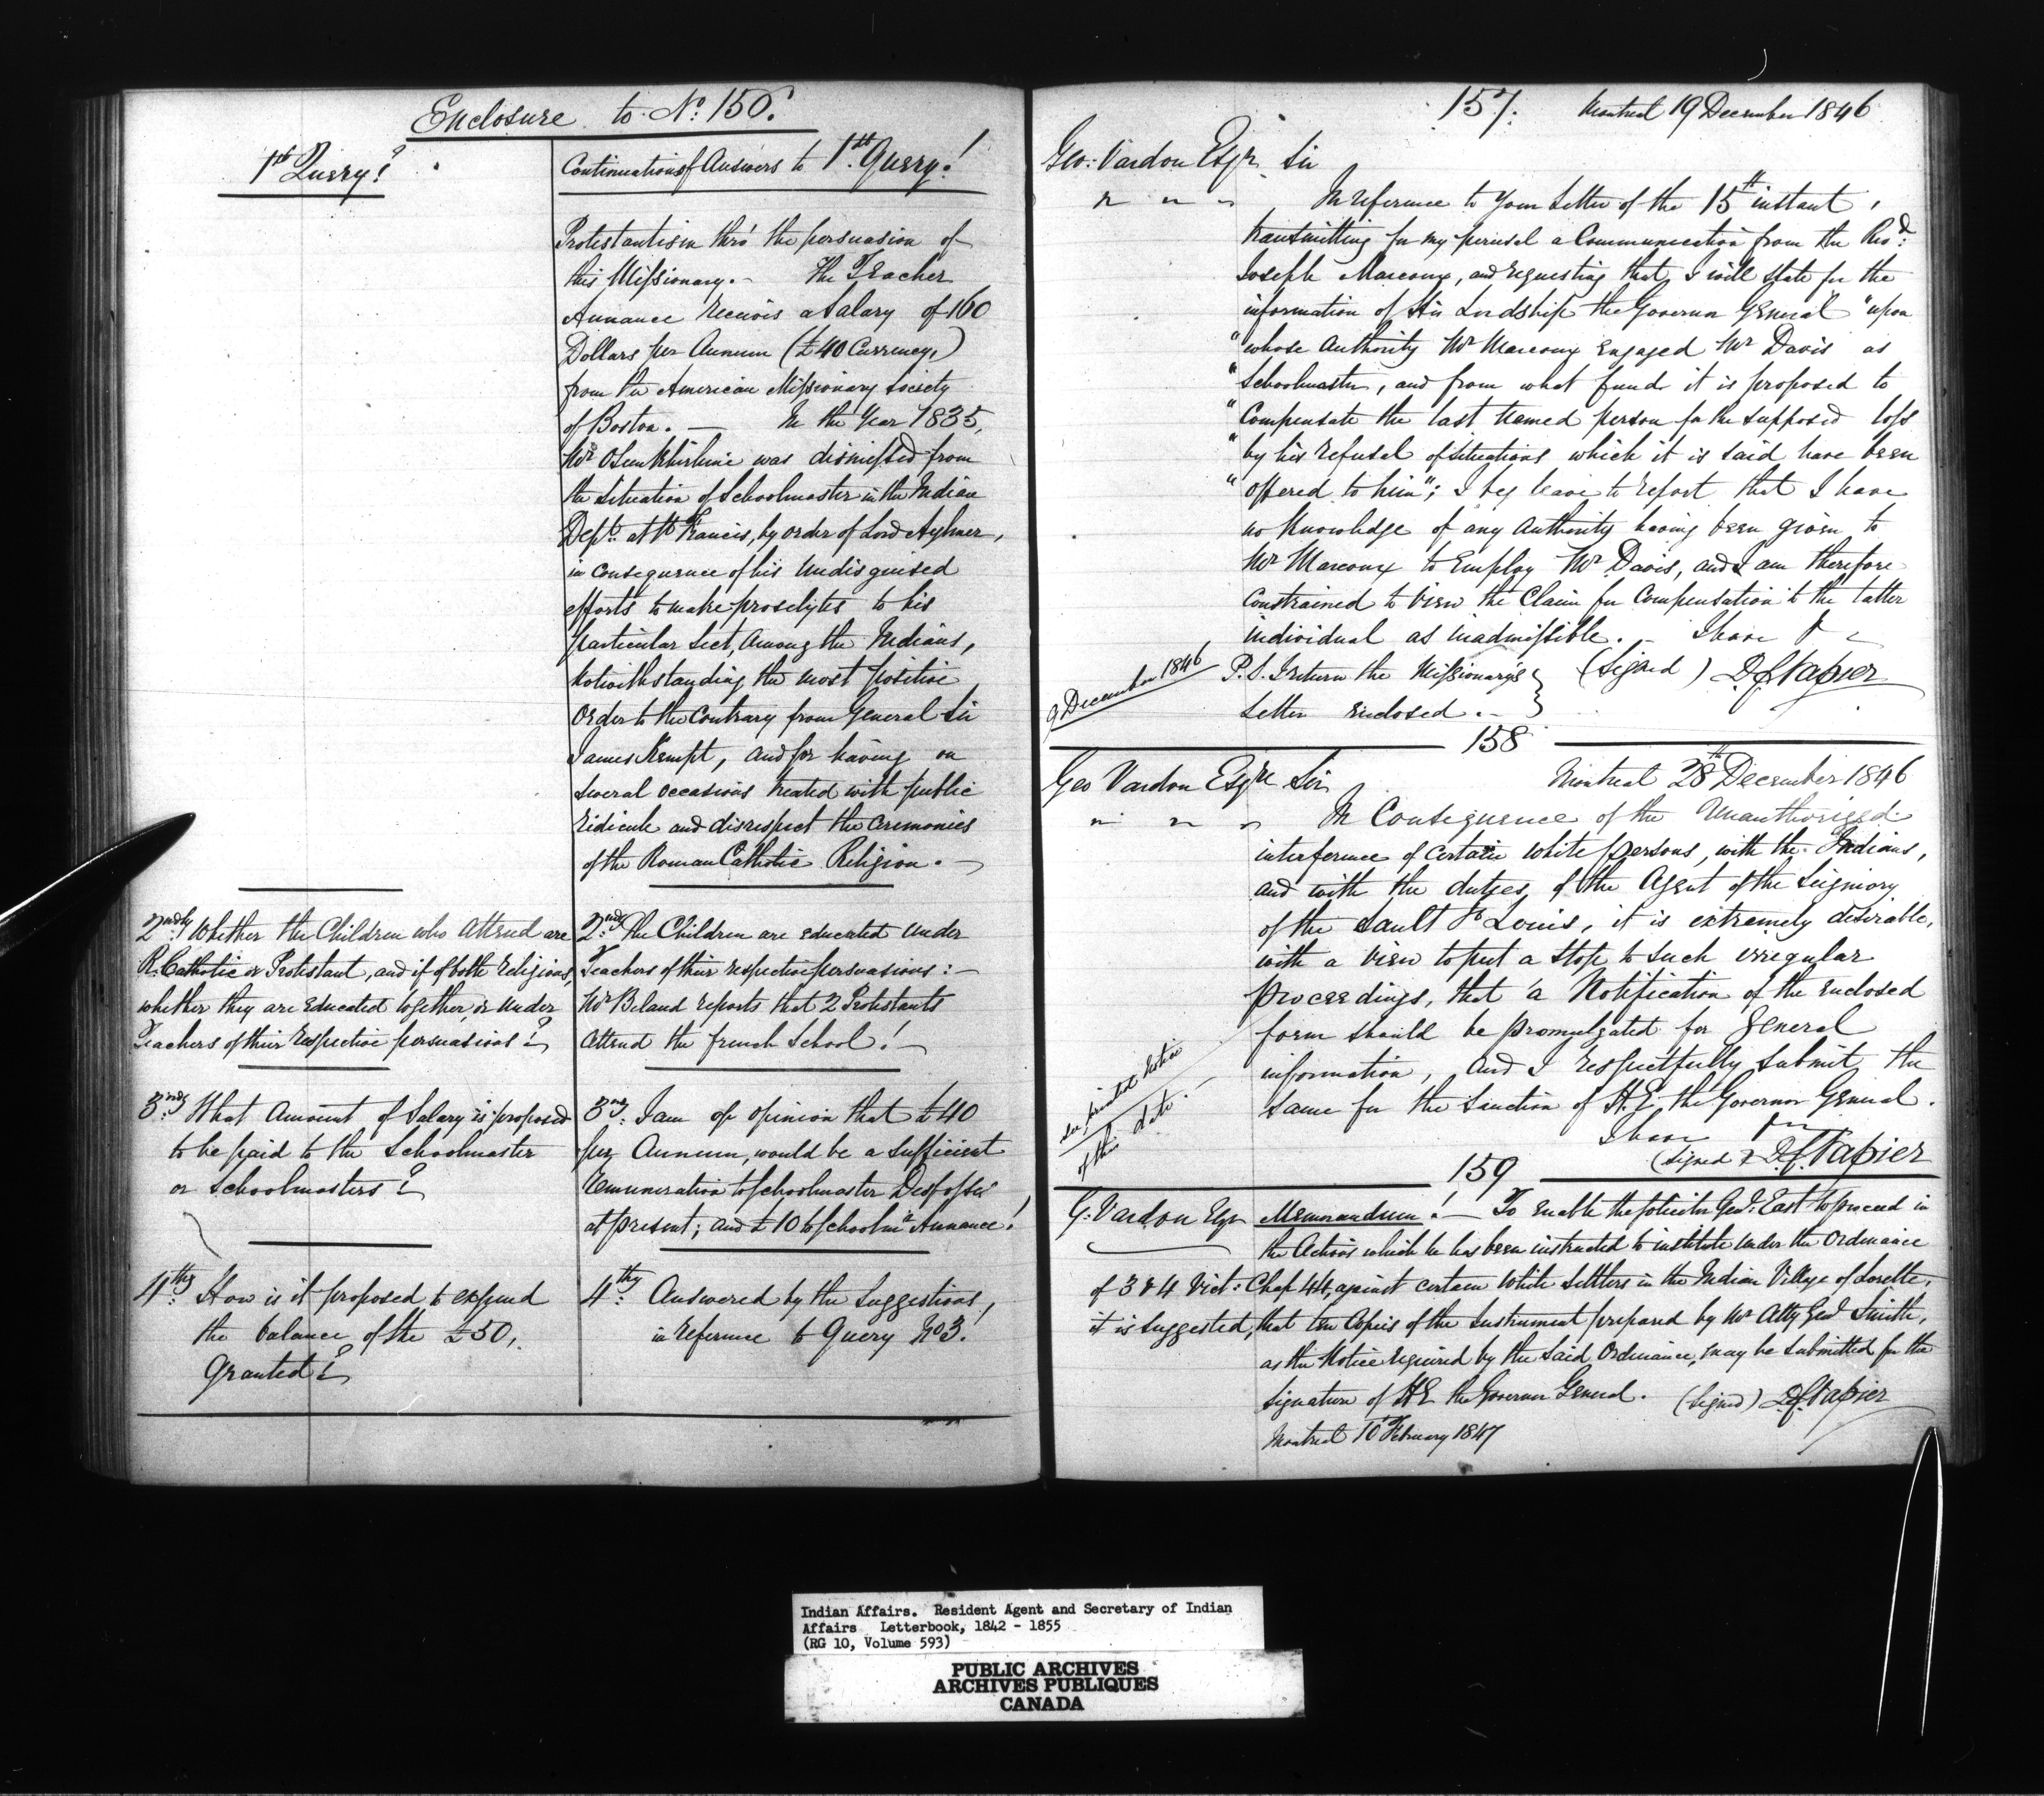 Enclosure to No. 156.
1st Query?
Continuation of Answers to 1st Query!
Protestantism thro' the persuasion of
this Missionary. - The Teacher
Annance receives a Salary of 160
Dollars per Annum (£40 Currency,)
from the American Missionary Society
of Boston. - In the Year 1835,
Mr Osunkhirhine was dismissed from
the Situation of Schoolmaster in the Indian
Dept. at St Francis, by order of Lord Aylmer,
in consequence of his undisguised
efforts to make proselytes to his
particular Sect, Among the Indians,
Notwithstanding the most positive
Order to the Contrary from General Sir
James Kempt, and for having on
several occasions treated with public
ridicule and disrespect the Ceremonies
of the Roman Catholic Religion. -
2ndly Whether the Children who attend are
R. Catholic or Protestant, and if of both religions,
whether they are Educated together, or under
Teachers of their respective persuasions?
2nd The Children are educated under
Teachers of their respective persuasions: -
Mr Beland reports that 2 Protestants
attend the french School! -
3rdly What Amount of Salary is proposed
to be paid to the Schoolmaster
or Schoolmasters?
3rdly I am of opinion that £40
per Annum, would be a sufficient
remuneration to Schoolmaster
at present; and £10 to Annance!
4thly How is it proposed to expend
the balance of the £50,
Granted?
4thly Answered by the Suggestions,
in reference to Query No 3!
157. Montreal 19 December 1846
Geo: Vardon Esqr Sir
" " " In reference to your Letter of the 15th instant,
transmitting for my perusal a Communication from the Revd:
Joseph Marcoux, and requesting that I will state for the
information of His Lordship the Governor General "upon
"whose Authority Mr Marcoux engaged Mr Davis as
"Schoolmaster, and from what fund it is proposed to
"Compensate the last named person for the supposed loss
"by his refusal of situations which it is said have been
"offered to him"; I beg leave to report that I have
no knowledge of any Authority having been given to
Mr Marcoux to Employ Mr Davis, and I am therefore
constrained to view the Claim for Compensation to the latter
individual as inadmissible. - I have &c
9 December 1846
P.S. I return the Missionary's
Letter enclosed. -
(Signed) D.C. Napier
158
Geo Vardon Esqre Sir Montreal 28th December 1846
" " " In Consequence of the Unauthorized
interference of certain white persons, with the Indians,
and with the duties of the Agent of the Seigniory
of the Sault St Louis, it is extremely desirable,
with a view to put a stop to such irregular
proceedings, that a Notification of the enclosed
form should be promulgated for general
information, and I respectfully submit the
same for the Sanction of H.E. the Governor General.
see printed Notice
of this date. -
I have &c
(Signed) D.C. Napier
159
G: Vardon Esqr Memorandum! - To enable the Solicitor Genl: East to proceed in
the Actions which he has been instructed to institute under the Ordinance
of 3 & 4 Vict: Chap 44, against certain White Settlers in the Indian Village of Lorette,
it is suggested, that ten Copies of the Instrument prepared by Mr Atty Genl Smith,
as the Notice required by the said Ordinance, may be submitted for the
signature of H.E the Governor General. (Signed) D.C. Napier
Montreal 10 February 1847
Indian Affairs. Resident Agent and Secretary of Indian
Affairs Letterbook, 1842 - 1855
(RG 10, Volume 593)
PUBLIC ARCHIVES
ARCHIVES PUBLIQUES
CANADA